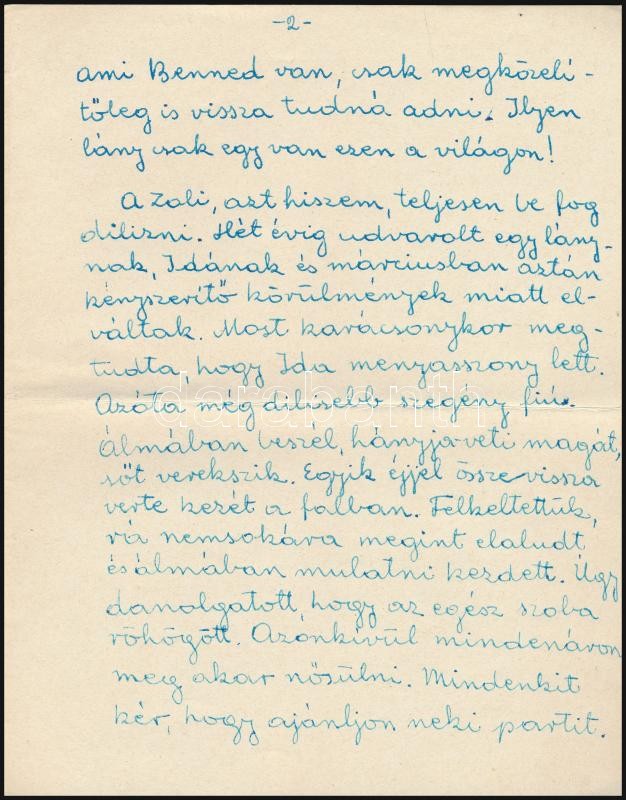 -2-
ami Benned van, csak megközelí-
tőleg is vissza tudná adni. Ilyen
lány csak egy van ezen a világon!
A Zoli, azt hiszem, teljesen be fog
dilizni. Hét évig udvarolt egy lány-
nak, Idának és márciusban aztán
kényszerítő körülmények miatt el-
váltak. Most karácsonykor meg-
tudta, hogy Ida menyasszony lett.
Azóta még dilisebb szegény fiú.
Álmában beszél, hányja-veti magát,
sőt verekszik. Egyik éjjel összevissza
verte kezét a falban. Felkeltettük,
rá nemsokára megint elaludt
és álmában mulatni kezdett. Úgy
danolgatott, hogy az egész szoba
röhögött. Azonkívül mindenáron
meg akar nősülni. Mindenkit
kér, hogy ajánljon neki partit.
darabanth